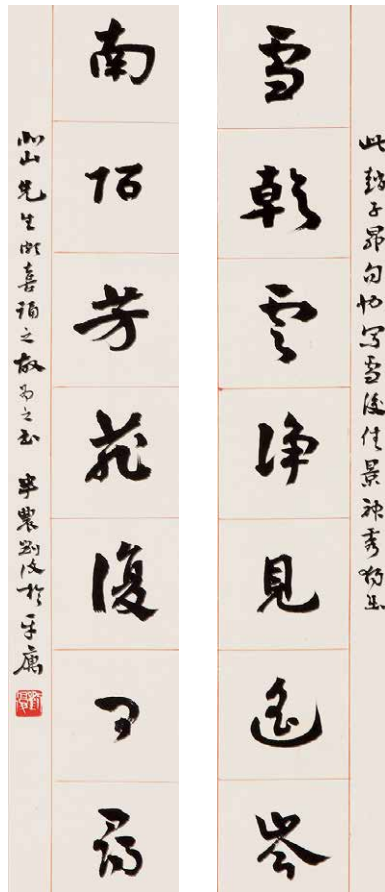 此趙子昂句妙寫雪後佳景神秀獨出
雪乾雲淨見遙岑
南陌芳菲復可尋
北山先生頗喜誦之故為之書 半農劉復於平寓